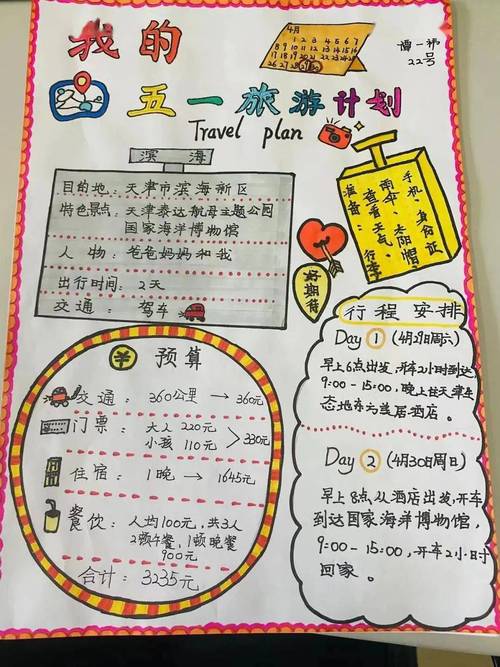 我的
4月
22号
五一旅游计划
Travel plan
滨海
目的地：天津市滨海新区
特色景点：天津泰达航母主题公园
国家海洋博物馆
人物：爸爸妈妈和我
出行时间：2天
交通：驾车
准备：
手机、身份证
雨伞、太阳帽
查看天气、行李
好期待
预算
交通：360公里 → 360元
门票：大人 220元
小孩 110元 > 330元
住宿：1晚 → 1645元
餐饮：人均100元，共3人
2顿午餐，1顿晚餐
900元
合计：3235元
行程安排
Day 1 (4月29日周六)
早上6点出发，开车2小时到达
9:00-15:00，晚上住天津生
态地东元当居酒店。
Day 2 (4月30日周日)
早上8点，从酒店出发，开车
到达国家海洋博物馆，
9:00-15:00，开车2小时
回家。